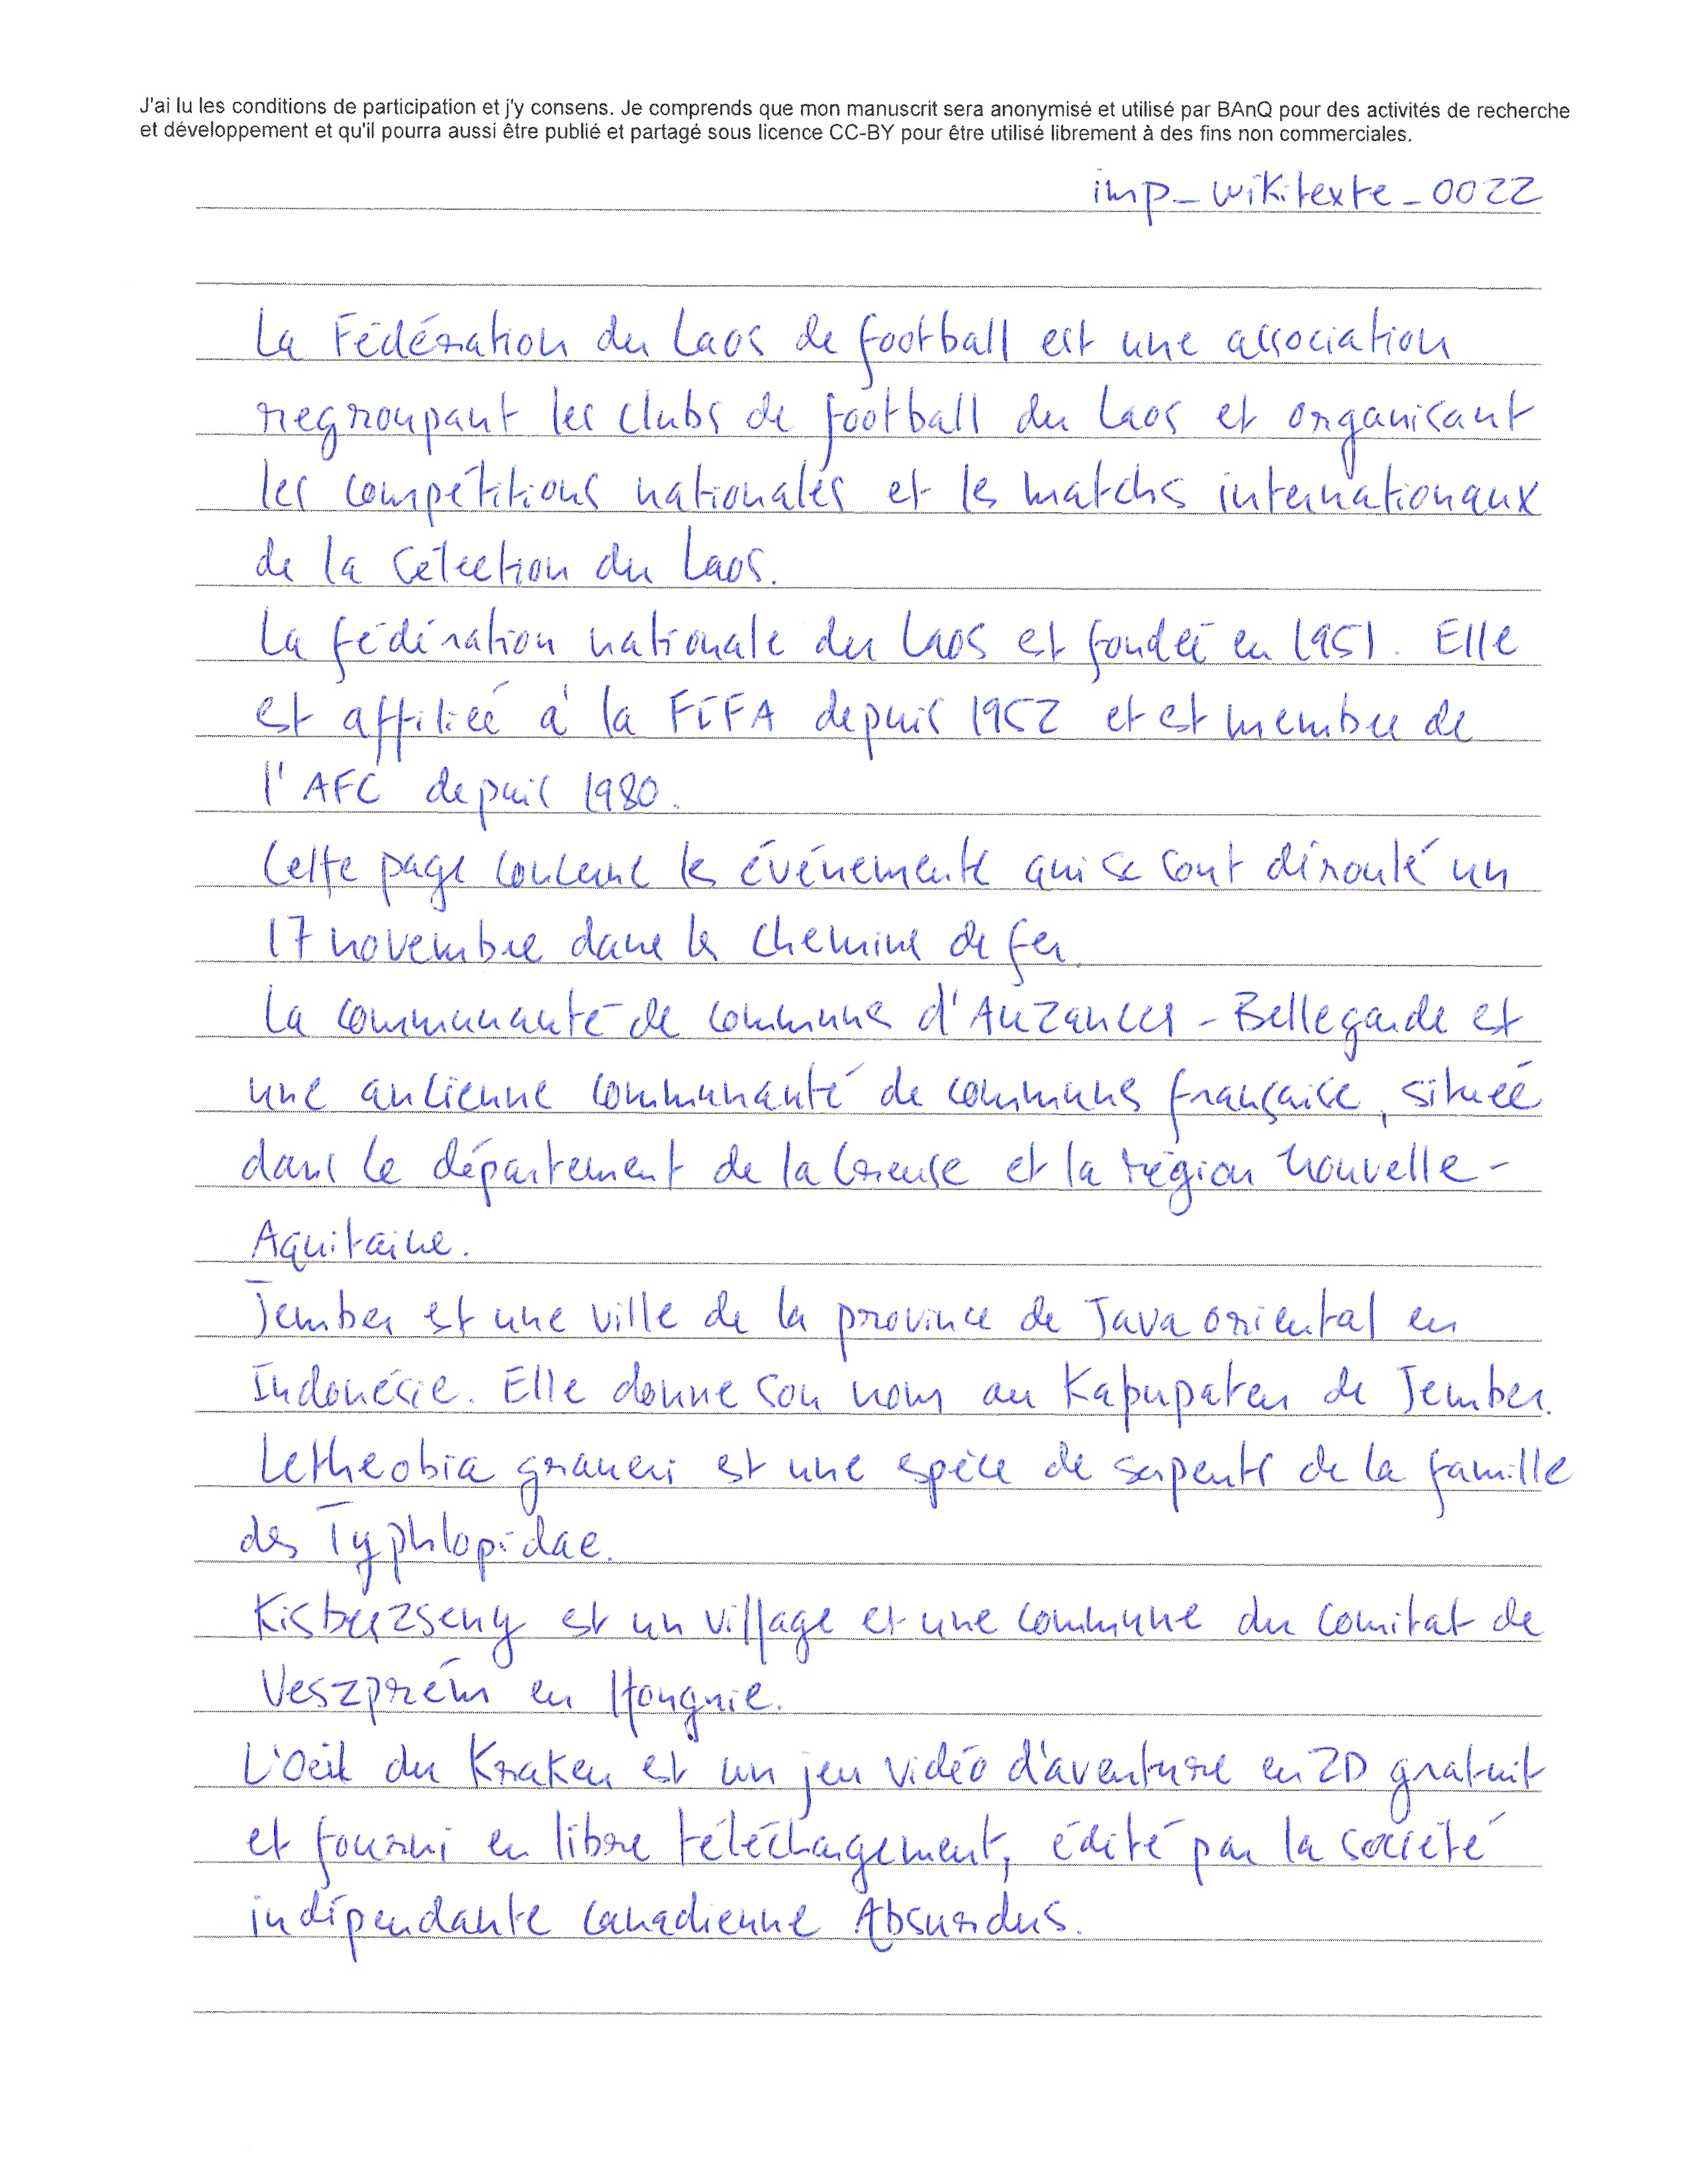 J'ai lu les conditions de participation et j'y consens. Je comprends que mon manuscrit sera anonymisé et utilisé par BAnQ pour des activités de recherche
et développement et qu'il pourra aussi être publié et partagé sous licence CC-BY pour être utilisé librement à des fins non commerciales.
imp_wikitexte_0022
La Fédération du Laos de football est une association
regroupant les clubs de football du Laos et organisant
les compétitions nationales et les matchs internationaux
de la sélection du Laos.
La fédération nationale du Laos est fondée en 1951. Elle
est affiliée à la FIFA depuis 1952 et est membre de
l'AFC depuis 1980.
Cette page concerne les événements qui se sont déroulé un
17 novembre dans les chemins de fer.
La communauté de communes d'Auzances - Bellegarde est
une ancienne communauté de communes française, située
dans le département de la Creuse et la région Nouvelle-
Aquitaine.
Jember est une ville de la province de Java oriental en
Indonésie. Elle donne son nom au Kabupaten de Jember.
Letheobia graueri est une espèce de serpents de la famille
des Typhlopidae.
Kisberzseny est un village et une commune du comitat de
Veszprém en Hongrie.
L'Oeil du Kraken est un jeu vidéo d'aventure en 2D gratuit
et fourni en libre téléchargement, édité par la société
indépendante canadienne Absurdus.